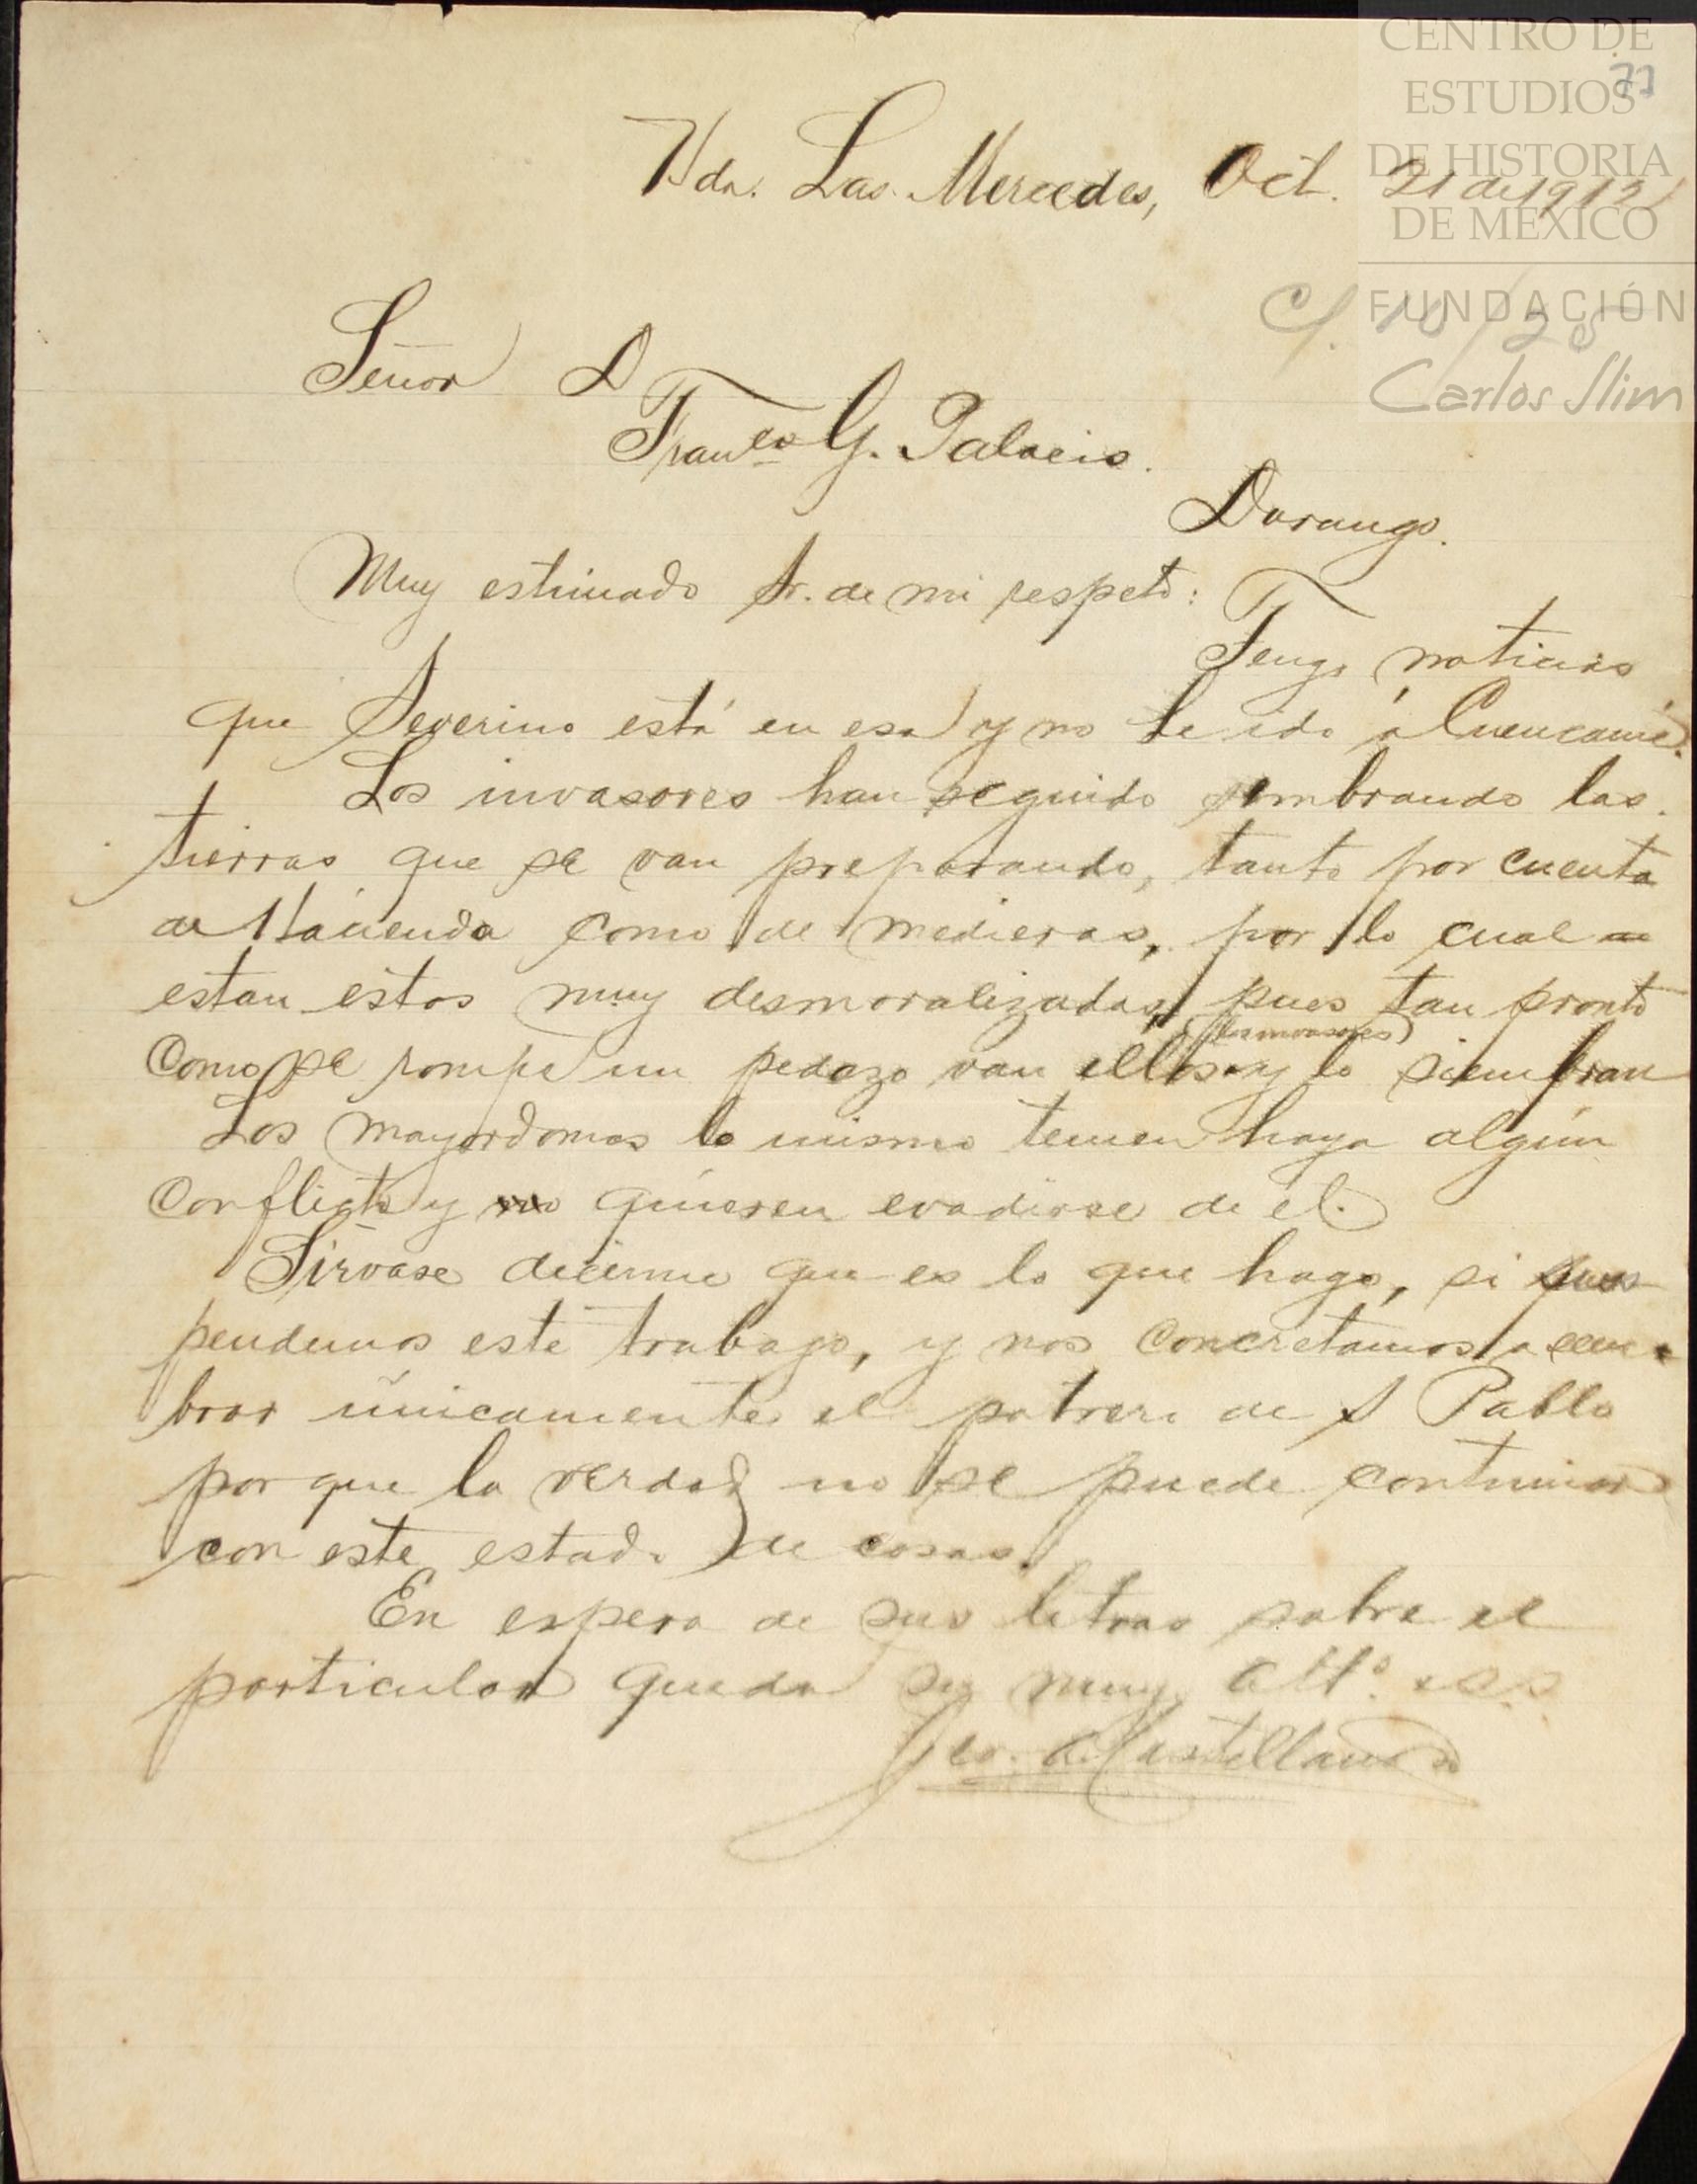 CENTRO DE
ESTUDIOS
DE HISTORIA
DE MÉXICO
FUNDACIÓN
Carlos Slim
77
Hda. Las Mercedes, Oct. 21 de 1912
C/. 10/25
Señor D
Franco G. Palacio.
Durango.
Muy estimado Sr. de mi respeto:
Tengo noticias
que Severino está en esa y no he ido á Cuencamé.
Los invasores han seguido sembrando las
tierras que se van preparando, tanto por cuenta
de Hacienda como de medieros, por lo cual
estan estos muy desmoralizados, pues tan pronto
(los invasores)
como se rompe un pedazo van ellos y lo siembran
Los mayordomos lo mismo temen haya algún
conflicto y no quieren evadirse de él.
Sírvase decirme que es lo que hago, si sus
pendemos este trabajo, y nos concretamos a sem
brar únicamente el potrero de S Pablo
por que la verdad no se puede continuar
con este estado de cosas.
En espera de sus letras sobre el
particular quedo su muy atto. s.s.
Castellanos